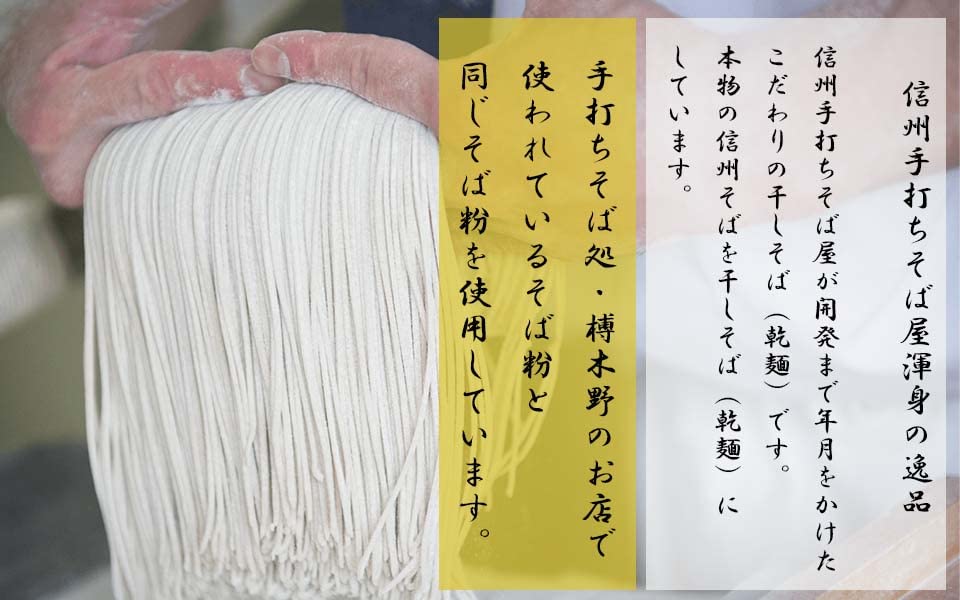 信州手打ちそば屋渾身の逸品
信州手打ちそば屋が開発まで年月をかけた
こだわりの干しそば（乾麺）です。
本物の信州そばを干しそば（乾麺）に
しています。
手打ちそば処・榑木野のお店で
使われているそば粉と
同じそば粉を使用しています。